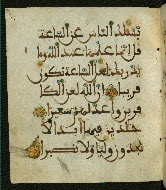 يسئلك الناس عن الساعة
قل إنما علمها عند الله وما
يدريك لعل الساعة تكون
قريبا إن الله لعن الكا
فرين وأعد لهم سعيرا
خلدين فيها أبدا لا
يجدون وليا ولا نصيرا